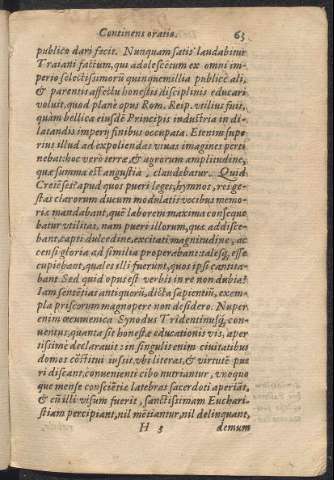 Continens oratio. 63
publico dari fecit. Nunquam satis laudabitur
Traiani factum, qui adolescētum ex omni im-
perio selectissimorū quinquemillia publicè ali,
& parentis affectu honestis disciplinis educari
voluit, quod planè opus Rom. Reip. vtilius fuit,
quàm bellica eiusdē Principis industria in di-
latandis imperij finibus occupata. Etenim supe-
rius illud ad expoliendas viuas imagines perti
nebat: hoc verò terræ, & agrorum amplitudine,
quæ summa est angustia, claudebatur. Quid
Cretēses? apud quos pueri leges, hymnos, res ge-
stas clarorum ducum modulatis vocibus memo-
riæ mandabant, quē laborem maxima conseque
batur vtilitas, nam pueri illorum, quæ addisce-
bant, capti dulcedine, excitati magnitudine, ac
censi gloria ad similia properabant: talesq́; esse
cupiebant, quales illi fuerunt, quos ipsi cantita-
bant. Sed quid opus est verbis in re non dubia?
Iam sentētias antiquorū, dicta sapientiū, exem-
pla priscorum magnopere non desidero. Nuper
enim œcumenica Synodus Tridentinusq́; con-
uentus, quanta sit honestæ educationis vis, aper
tissimè declarauit: in singulis enim ciuitatibus
domos cōstitui iussit, vbi literas, & virtutē pue
ri discant, conuenienti cibo nutriantur, vnoquo
que mense consciētiæ latebras sacerdoti aperiāt,
& cū illi visum fuerit, sanctissimam Euchari-
stiam percipiant, nil mētiantur, nil delinquant,
H 3 demum